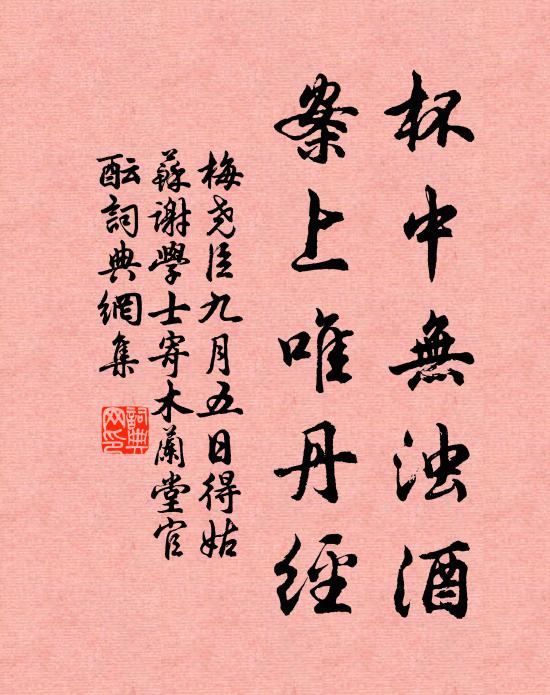 杯中無濁酒
案上唯丹經
梅堯臣九月五日得姑
蘇謝學士寄木蘭堂官
酝詞典網集
詞典
网印